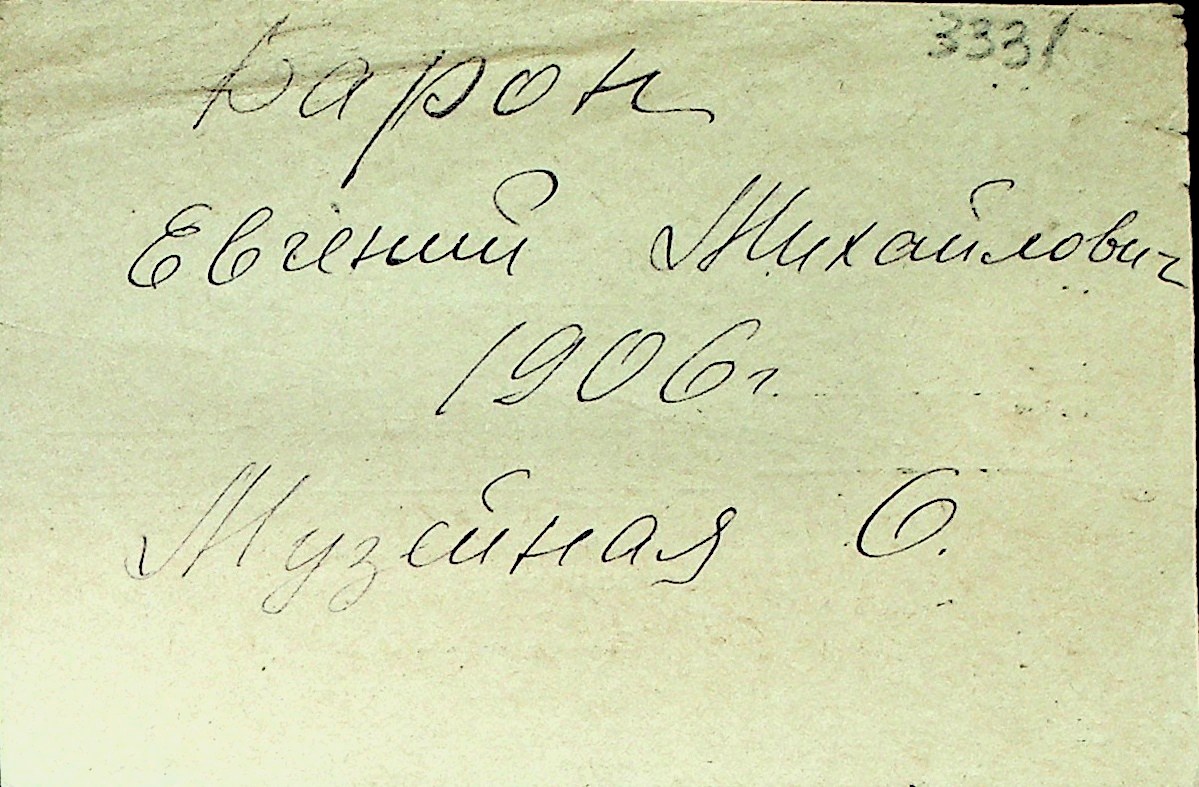 3331
Барон
Евгений Михайлович
1906г.
Музейная 6.